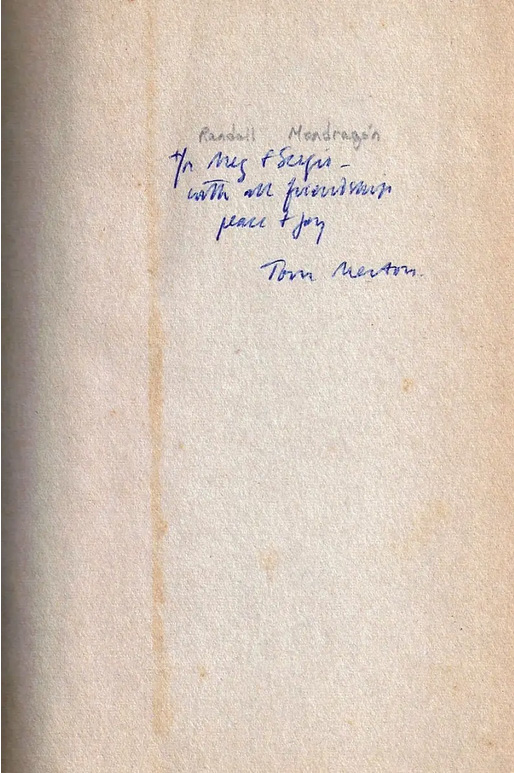 Randall Mondragón
for Meg + Sergio –
with all friendship
peace + joy
Tom Merton.